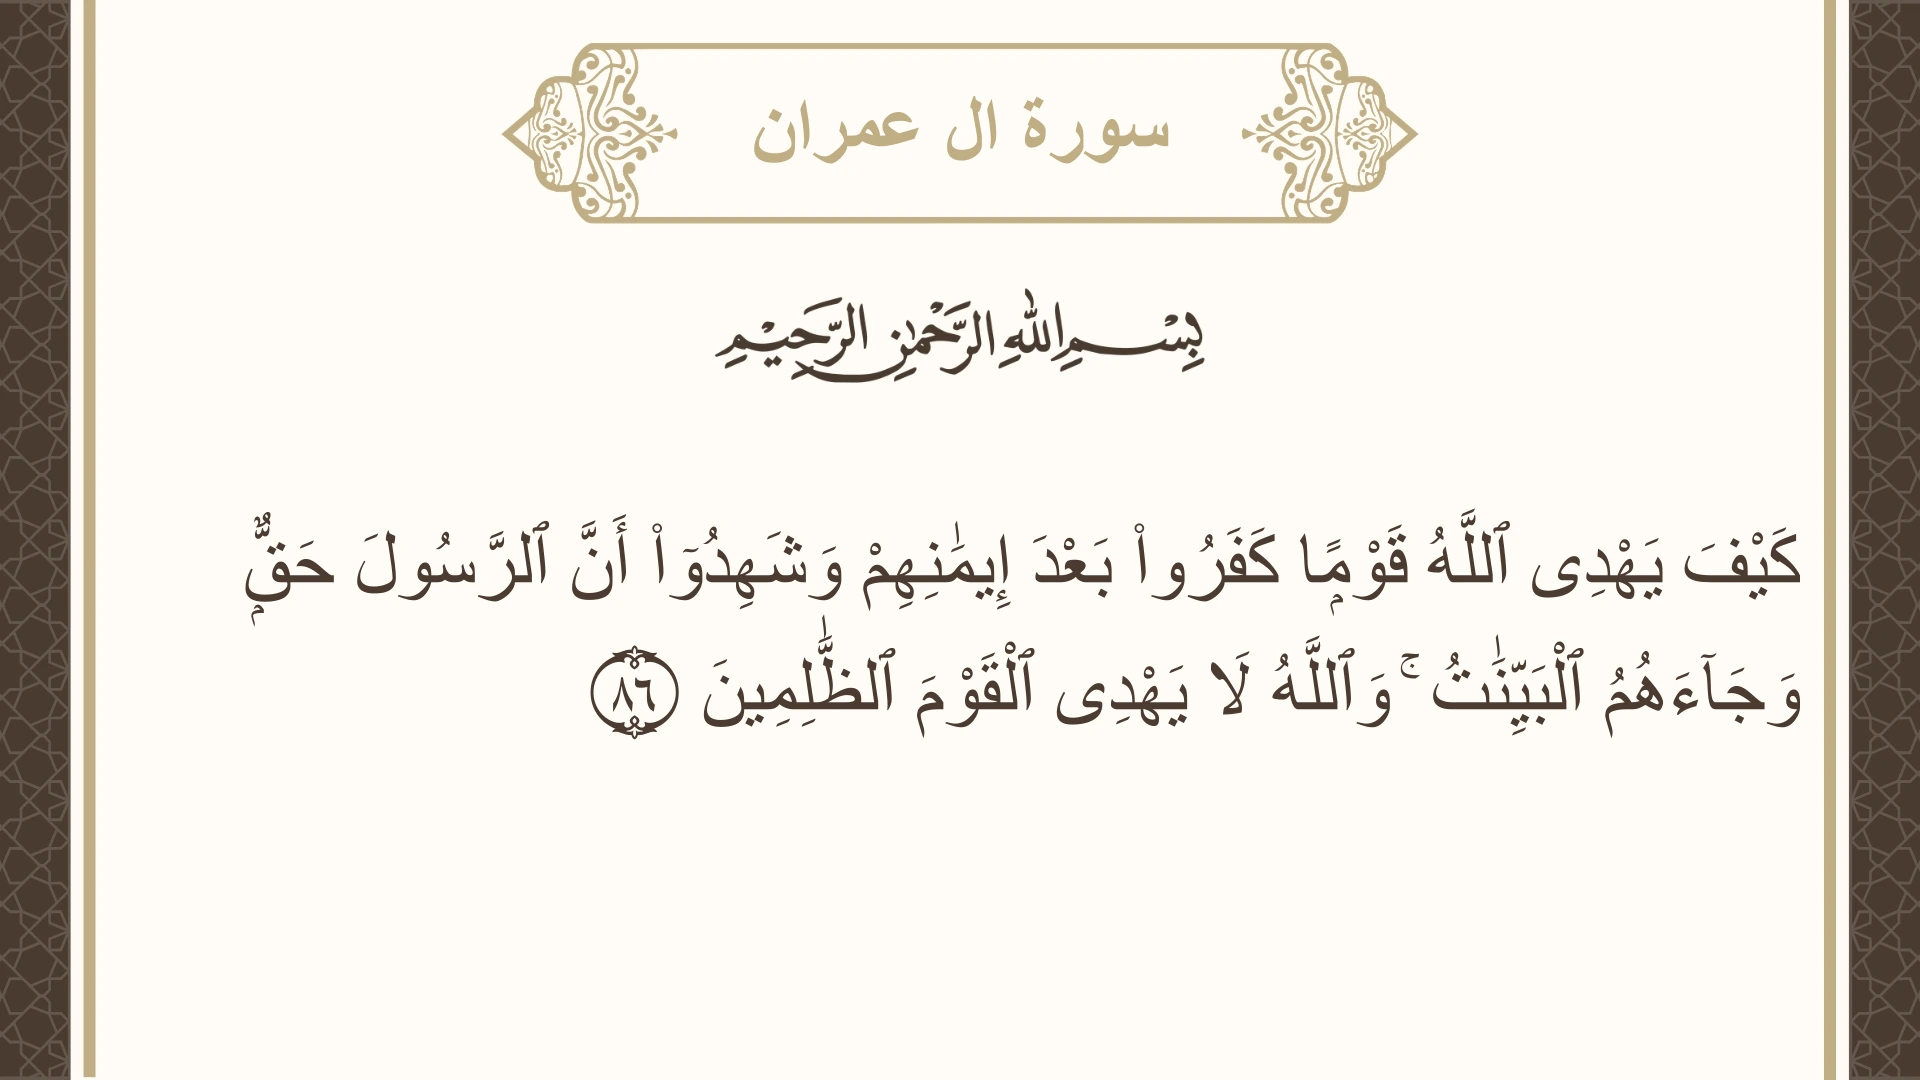 سورة ال عمران
بِسْمِ اللهِ الرَّحْمٰنِ الرَّحِيْمِ
كَيْفَ يَهْدِى ٱللَّهُ قَوْمًۭا كَفَرُوا۟ بَعْدَ إِيمَـٰنِهِمْ وَشَهِدُوٓا۟ أَنَّ ٱلرَّسُولَ حَقٌّۭ
وَجَآءَهُمُ ٱلْبَيِّنَـٰتُ ۚ وَٱللَّهُ لَا يَهْدِى ٱلْقَوْمَ ٱلظَّـٰلِمِينَ ٨٦